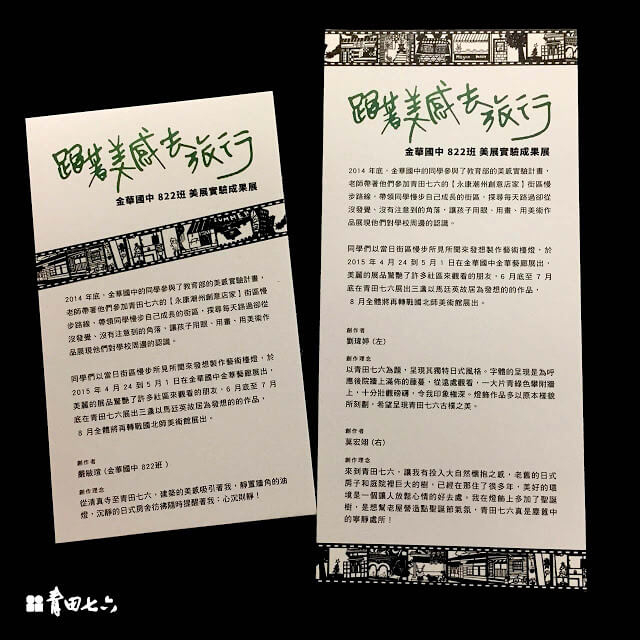 跟著美感去旅行
金華國中 822班 美展實驗成果展
2014 年底，金華國中的同學參與了教育部的美感實驗計畫，
老師帶著他們參加青田七六的【永康潮州創意店家】街區慢
步路線，帶領同學慢步自己成長的街區，探尋每天路過卻從
沒發覺、沒有注意到的角落，讓孩子用眼、用畫、用美術作
品展現他們對學校周邊的認識。
同學們以當日街區慢步所見所聞來發想製作藝術檯燈，於
2015 年 4 月 24 到 5 月 1 日在金華國中金華藝廊展出，
美麗的展品驚艷了許多社區來觀看的朋友，6 月底至 7 月
底在青田七六展出三盞以馬廷英故居為發想的的作品，
8 月全體將再轉戰國北師美術館展出。
創作者
嚴敏瑄 (金華國中 822班 )
創作理念
從清真寺至青田七六，建築的美感吸引著我，靜置牆角的油
燈，沉靜的日式房舍彷彿隨時提醒著我：心沉則靜！
跟著美感去旅行
金華國中 822班 美展實驗成果展
2014 年底，金華國中的同學參與了教育部的美感實驗計畫，
老師帶著他們參加青田七六的【永康潮州創意店家】街區慢
步路線，帶領同學慢步自己成長的街區，探尋每天路過卻從
沒發覺、沒有注意到的角落，讓孩子用眼、用畫、用美術作
品展現他們對學校周邊的認識。
同學們以當日街區慢步所見所聞來發想製作藝術檯燈，於
2015 年 4 月 24 到 5 月 1 日在金華國中金華藝廊展出，
美麗的展品驚艷了許多社區來觀看的朋友，6 月底至 7 月
底在青田七六展出三盞以馬廷英故居為發想的的作品，
8 月全體將再轉戰國北師美術館展出。
創作者
劉瑋婷 (左)
創作理念
以青田七六為題，呈現其獨特日式風格。字體的呈現是為呼
應後院牆上滿佈的藤蔓，從遠處觀看，一大片青綠色攀附牆
上，十分壯觀磅礡，令我印象極深。燈飾作品多以原本樣貌
所刻劃，希望呈現青田七六古樸之美。
創作者
莫宏翊 (右)
創作理念
來到青田七六，讓我有投入大自然懷抱之感，老舊的日式
房子和庭院裡巨大的樹，已經在那住了很多年，美好的環
境是一個讓人放鬆心情的好去處。我在燈飾上參加了聖誕
樹，是想幫老屋營造點聖誕節氣氛，青田七六真是塵囂中
的寧靜處所！
青田七六